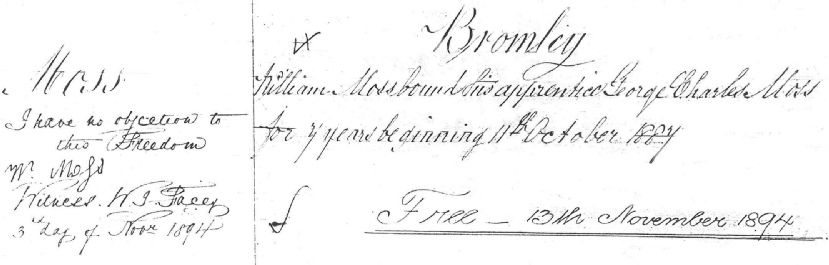 Bromley
Moss
William Moss bound his apprentice George Charles Moss
for 7 years beginning 11th October 1887
I have no objection to
this Freedom
Wm Moss
Witness W. J.
3rd day of Novr 1894
Free – 13th November 1894